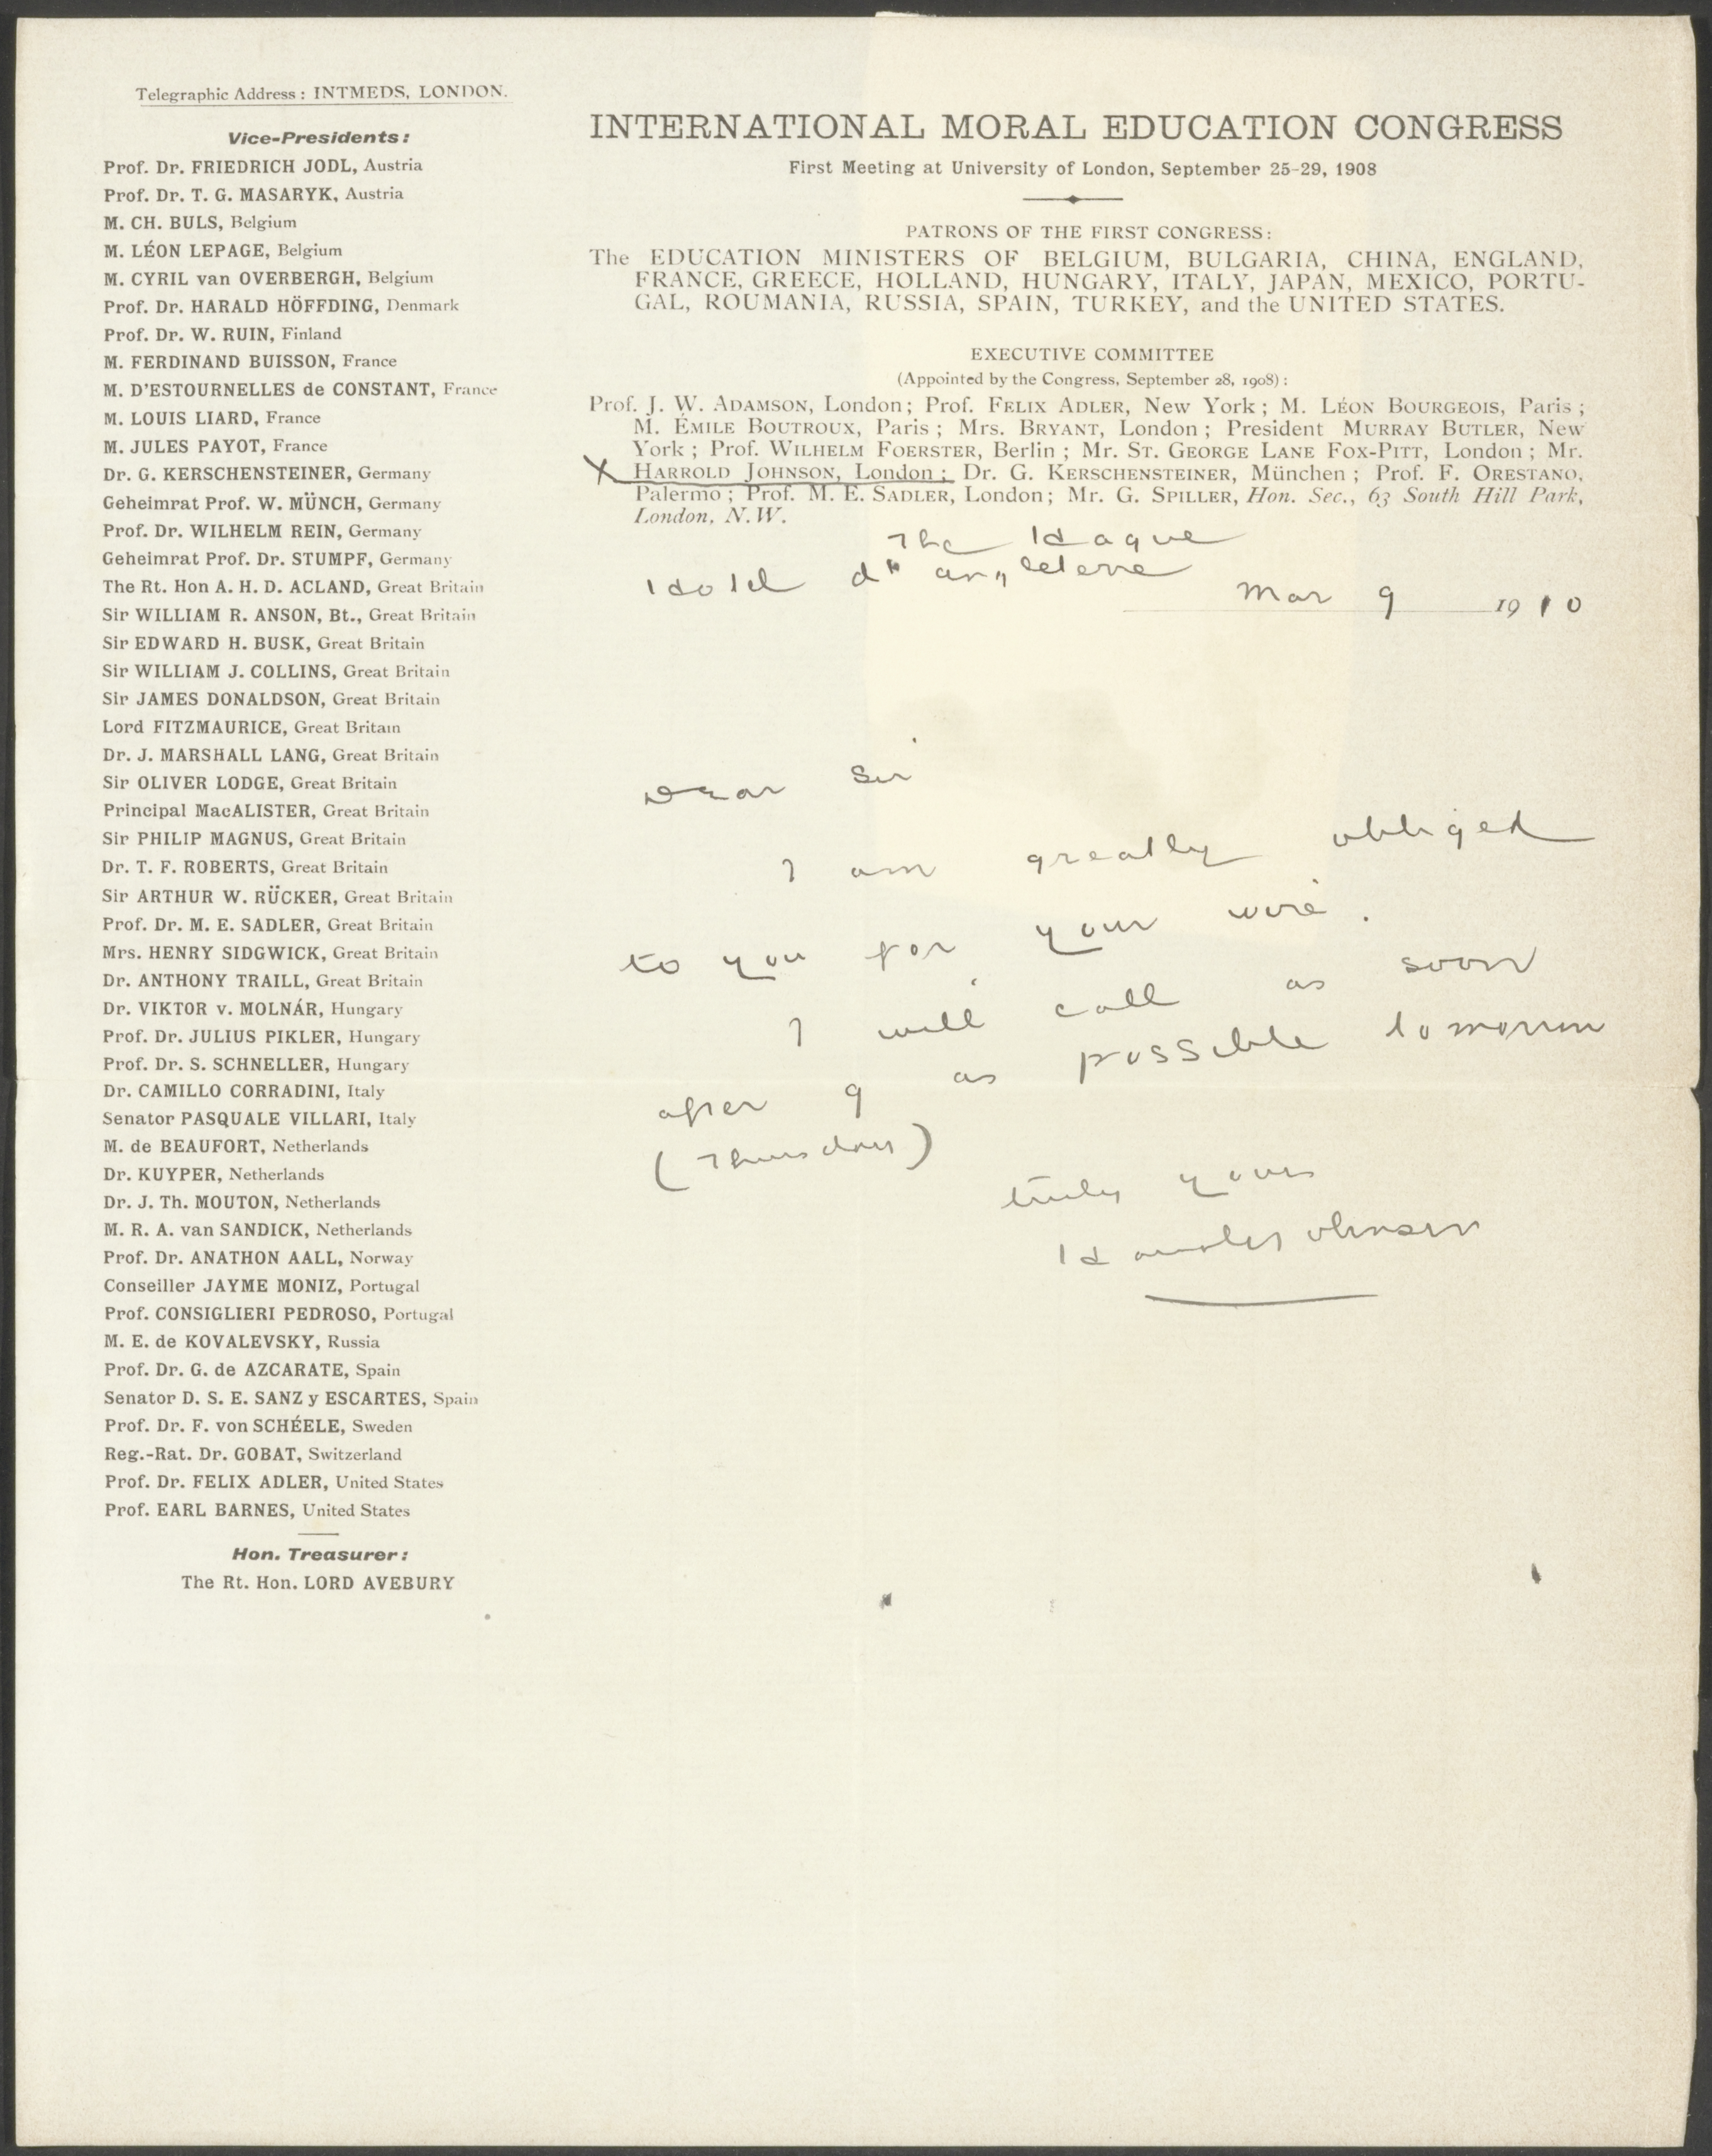 Telegraphic Address: INTMEDS, LONDON.
Vice-Presidents:
Prof. Dr. FRIEDRICH JODL, Austria
Prof. Dr. T. G. MASARYK, Austria
M. CH. BULS, Belgium
M. LÉON LEPAGE, Belgium
M. CYRIL van OVERBERGH, Belgium
Prof. Dr. HARALD HÖFFDING, Denmark
Prof. Dr. W. RUIN, Finland
M. FERDINAND BUISSON, France
M. D'ESTOURNELLES de CONSTANT, France
M. LOUIS LIARD, France
M. JULES PAYOT, France
Dr. G. KERSCHENSTEINER, Germany
Geheimrat Prof. W. MÜNCH, Germany
Prof. Dr. WILHELM REIN, Germany
Geheimrat Prof. Dr. STUMPF, Germany
The Rt. Hon A. H. D. ACLAND, Great Britain
Sir WILLIAM R. ANSON, Bt., Great Britain
Sir EDWARD H. BUSK, Great Britain
Sir WILLIAM J. COLLINS, Great Britain
Sir JAMES DONALDSON, Great Britain
Lord FITZMAURICE, Great Britain
Dr. J. MARSHALL LANG, Great Britain
Sir OLIVER LODGE, Great Britain
Principal MacALISTER, Great Britain
Sir PHILIP MAGNUS, Great Britain
Dr. T. F. ROBERTS, Great Britain
Sir ARTHUR W. RÜCKER, Great Britain
Prof. Dr. M. E. SADLER, Great Britain
Mrs. HENRY SIDGWICK, Great Britain
Dr. ANTHONY TRAILL, Great Britain
Dr. VIKTOR v. MOLNÁR, Hungary
Prof. Dr. JULIUS PIKLER, Hungary
Prof. Dr. S. SCHNELLER, Hungary
Dr. CAMILLO CORRADINI, Italy
Senator PASQUALE VILLARI, Italy
M. de BEAUFORT, Netherlands
Dr. KUYPER, Netherlands
Dr. J. Th. MOUTON, Netherlands
M. R. A. van SANDICK, Netherlands
Prof. Dr. ANATHON AALL, Norway
Conseiller JAYME MONIZ, Portugal
Prof. CONSIGLIERI PEDROSO, Portugal
M. E. de KOVALEVSKY, Russia
Prof. Dr. G. de AZCARATE, Spain
Senator D. S. E. SANZ y ESCARTES, Spain
Prof. Dr. F. von SCHÉELE, Sweden
Reg.-Rat. Dr. GOBAT, Switzerland
Prof. Dr. FELIX ADLER, United States
Prof. EARL BARNES, United States
Hon. Treasurer:
The Rt. Hon. LORD AVEBURY
INTERNATIONAL MORAL EDUCATION CONGRESS
First Meeting at University of London, September 25-29, 1908
PATRONS OF THE FIRST CONGRESS:
The EDUCATION MINISTERS OF BELGIUM, BULGARIA, CHINA, ENGLAND,
FRANCE, GREECE, HOLLAND, HUNGARY, ITALY, JAPAN, MEXICO, PORTU-
GAL, ROUMANIA, RUSSIA, SPAIN, TURKEY, and the UNITED STATES.
EXECUTIVE COMMITTEE
(Appointed by the Congress, September 28, 1908):
Prof. J. W. ADAMSON, London; Prof. FELIX ADLER, New York; M. LÉON BOURGEOIS, Paris;
M. ÉMILE BOUTROUX, Paris; Mrs. BRYANT, London; President MURRAY BUTLER, New
York; Prof. WILHELM FOERSTER, Berlin; Mr. ST. GEORGE LANE FOX-PITT, London; Mr.
X HARROLD JOHNSON, London; Dr. G. KERSCHENSTEINER, München; Prof. F. ORESTANO,
Palermo; Prof. M. E. SADLER, London; Mr. G. SPILLER, Hon. Sec., 63 South Hill Park,
London, N.W.
The Hague
Hotel d'Angleterre
Mar 9 1910
Dear Sir
I am greatly obliged
to you for your wire.
I will call as soon
after 9 as possible tomorrow
(Thursday)
truly yours
Harrold Johnson